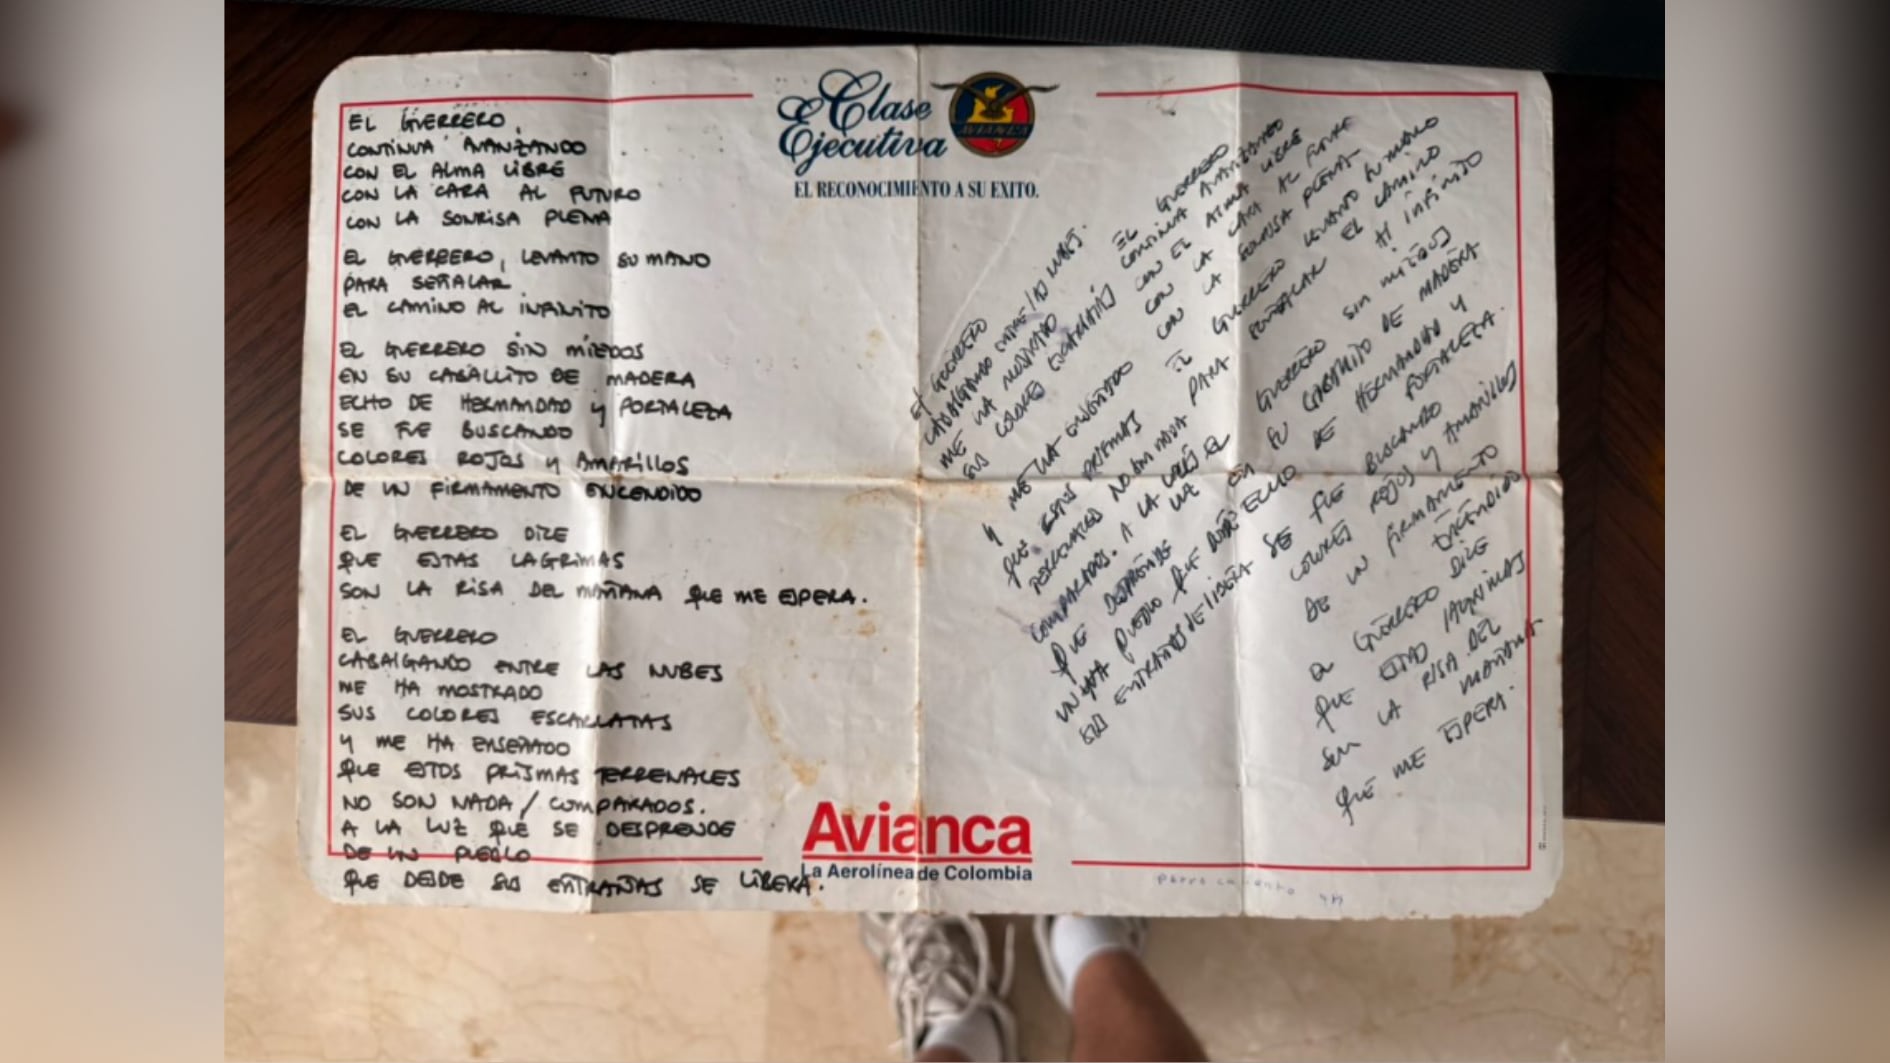 Clase
Ejecutiva
AVIANCA
EL RECONOCIMIENTO A SU EXITO.
EL GUERRERO,
CONTINUA AVANZANDO
CON EL ALMA LIBRE
CON LA CARA AL FUTURO
CON LA SONRISA PLENA
EL GUERRERO, LEVANTO SU MANO
PARA SEÑALAR
EL CAMINO AL INFINITO
EL GUERRERO SIN MIEDOS
EN SU CABALLITO DE MADERA
ECHO DE HERMANDAD Y FORTALEZA
SE FUE BUSCANDO
COLORES ROJOS Y AMARILLOS
DE UN FIRMAMENTO ENCENDIDO
EL GUERRERO DICE
QUE ESTAS LAGRIMAS
SON LA RISA DEL MAÑANA QUE ME ESPERA.
EL GUERRERO
CABALGANDO ENTRE LAS NUBES
ME HA MOSTRADO
SUS COLORES ESCARLATAS
Y ME HA ENSEÑADO
QUE ESTOS PRISMAS TERRENALES
NO SON NADA / COMPARADOS.
A LA LUZ QUE SE DESPRENDE
DE UN PUEBLO
QUE DESDE SUS ENTRAÑAS SE LIBERA.
EL GUERRERO
CABALGANDO ENTRE LAS NUBES.
ME HA MOSTRADO
SUS COLORES ESCARLATAS
Y ME HA ENSEÑADO
QUE ESTOS PRISMAS
TERRENALES NO SON NADA
COMPARADOS. A LA
QUE DESPRENDE
UN PUEBLO QUE
ENTRAÑAS SE LIBERA
EL GUERRERO
CONTINUA AVANZANDO
CON EL ALMA LIBRE
CON LA CARA AL FUTURO
CON LA SONRISA PLENA
EL GUERRERO LEVANTO SU MANO
PARA SEÑALAR EL CAMINO
AL INFINITO
EL GUERRERO SIN MIEDOS
EN SU CABALLITO DE MADERA
ECHO DE HERMANDAD Y
FORTALEZA.
SE FUE BUSCANDO
COLORES ROJOS Y AMARILLOS
DE UN FIRMAMENTO
ENCENDIDO
EL GUERRERO DICE
QUE ESTAS LAGRIMAS
SON LA RISA DEL
MAÑANA
QUE ME ESPERA.
Avianca
La Aerolínea de Colombia